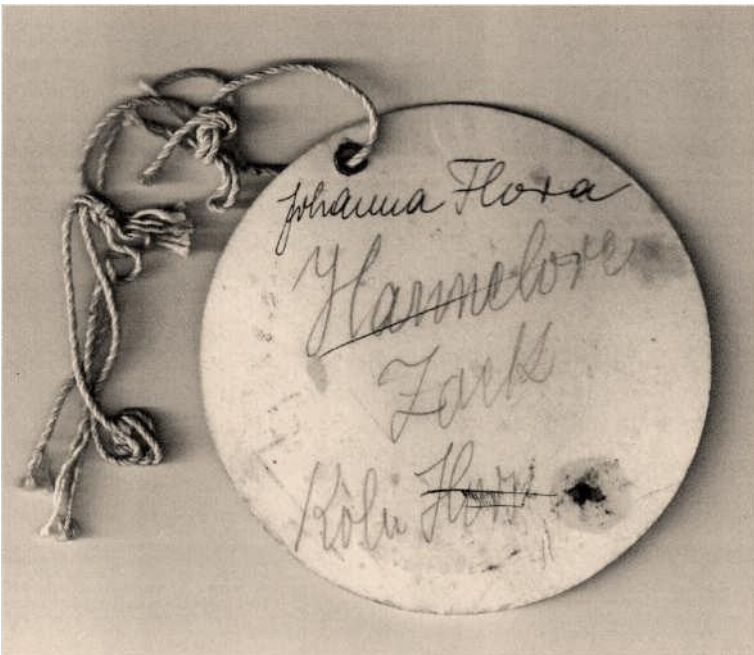 Johanna Flora
Hannelore
Zack
Köln